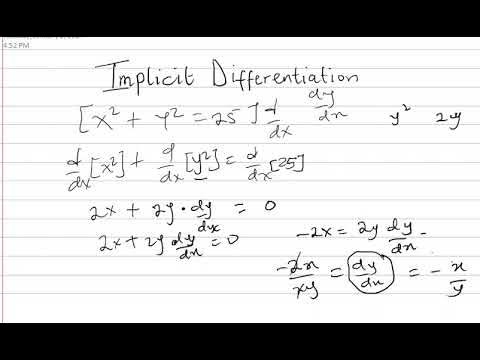 4:52 PM
Implicit Differentiation
[x² + y² = 25] d/dx dy/dx y² 2y
d/dx [x²] + d/dx [y²] = d/dx [25]
2x + 2y · dy/dx = 0
2x + 2y dy/dx = 0 -2x = 2y dy/dx
-2x/xy = dy/dx = - x/y